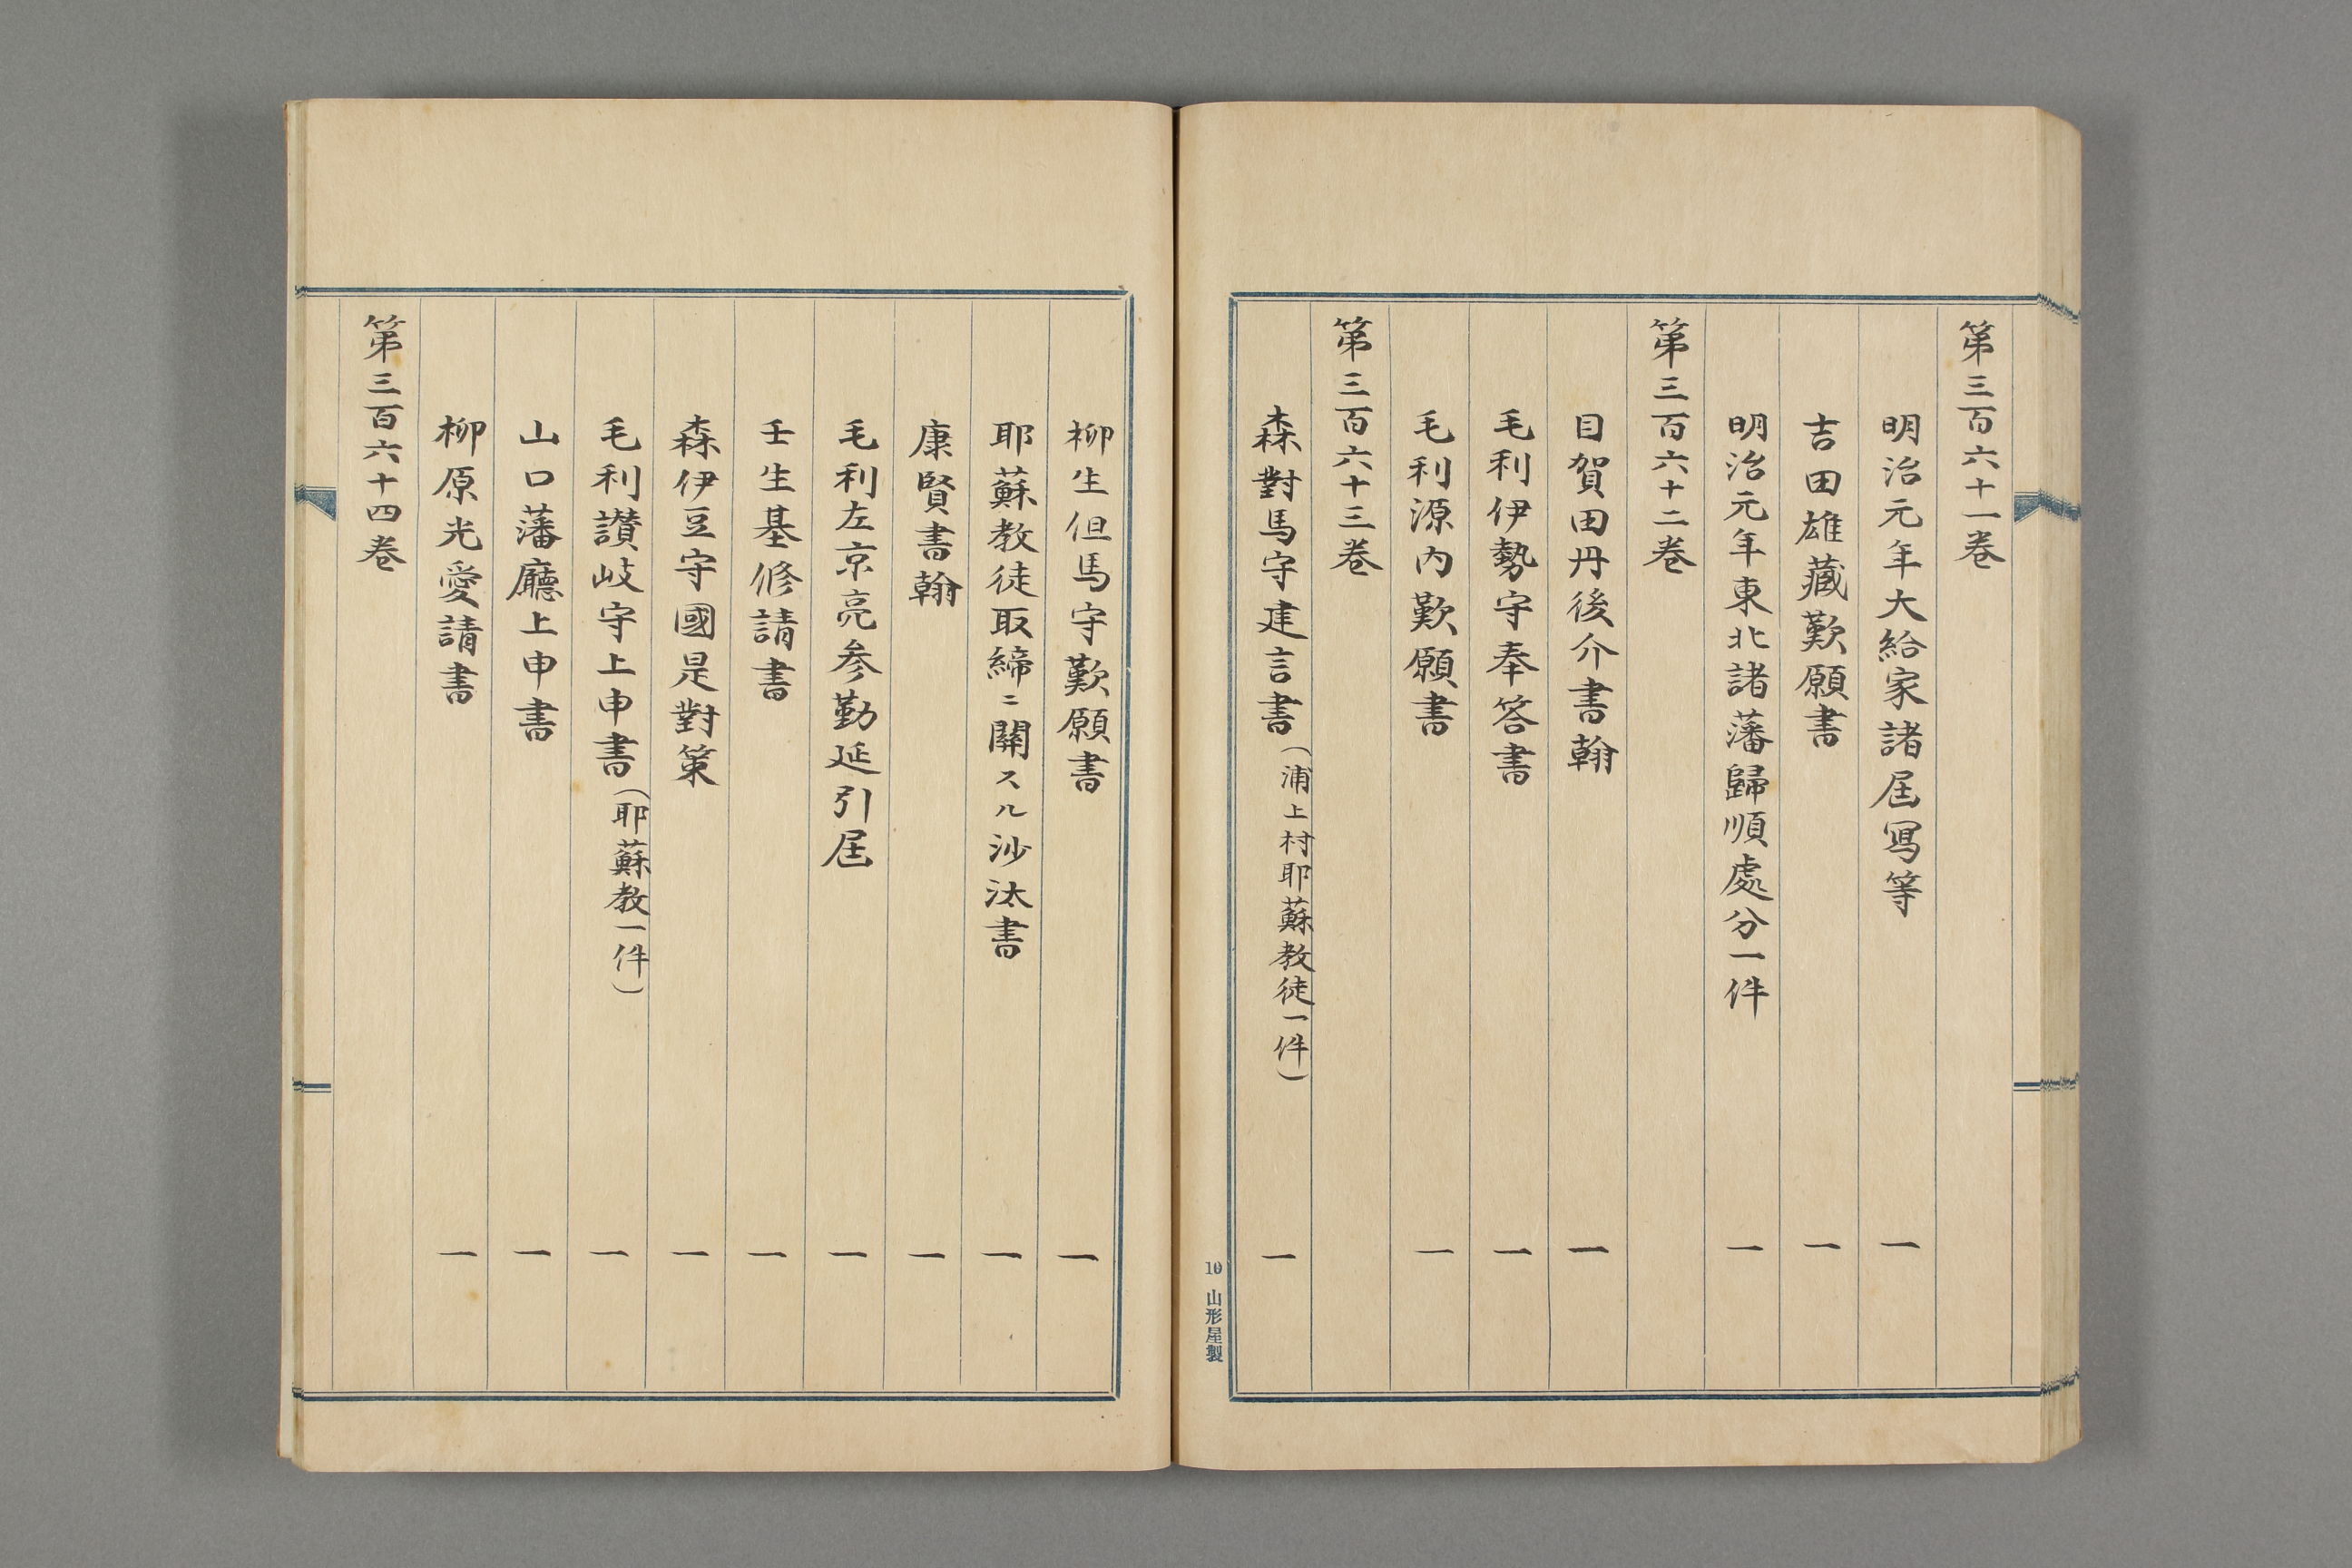 第三百六十一卷
明治元年大給家諸屆寫等 一
吉田雄藏歎願書 一
明治元年東北諸藩歸順處分一件 一
第三百六十二卷
目賀田丹後介書翰 一
毛利伊勢守奉答書 一
毛利源内歎願書 一
第三百六十三卷
森對馬守建言書(浦上村耶蘇教徒一件) 一
10 山形屋製
柳生但馬守歎願書 一
耶蘇教徒取締ニ關スル沙汰書 一
康賢書翰 一
毛利左京亮参勤延引屆 一
壬生基修請書 一
森伊豆守國是對策 一
毛利讃岐守上申書(耶蘇教一件) 一
山口藩廳上申書 一
柳原光愛請書 一
第三百六十四卷